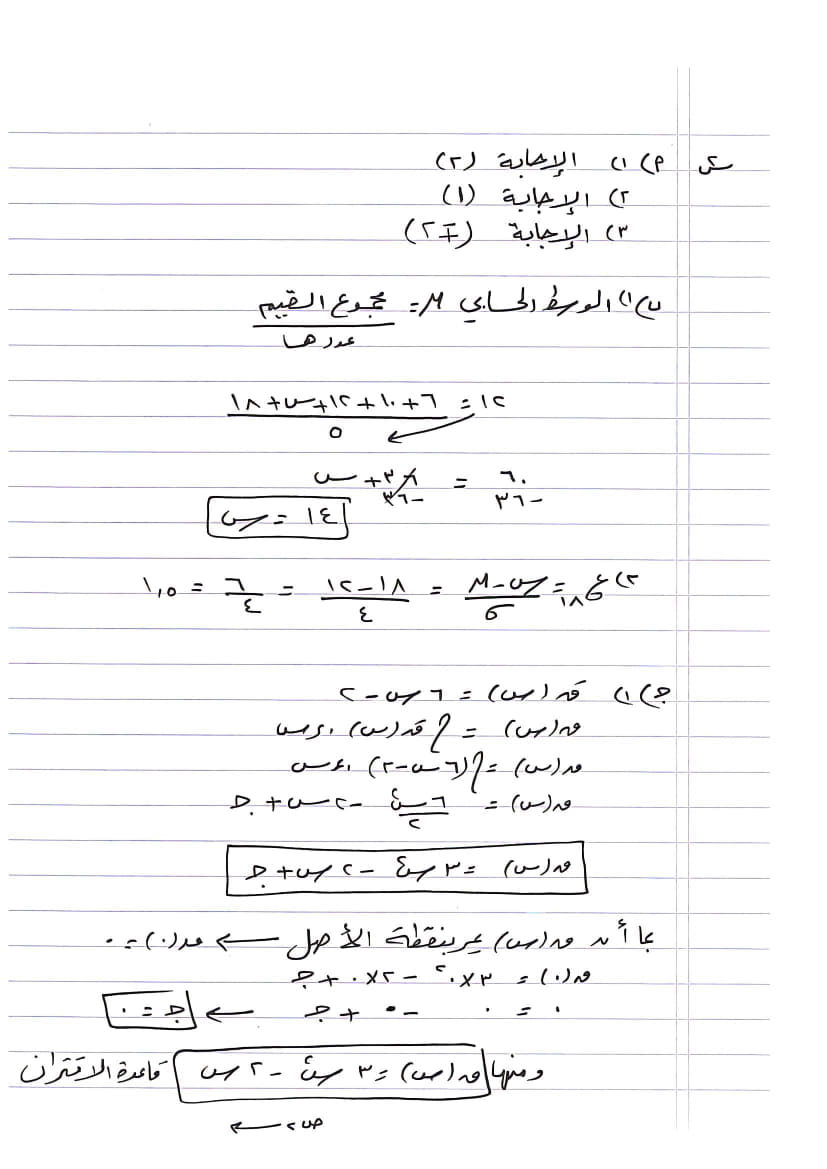 س٤ أ) ١) الإجابة (٢)
٢) الإجابة (١)
٣) الإجابة (∓٢)
ب) ١) الوسط الحسابي μ = مجموع القيم
عددها
١٢ = ٦ + ١٠ + ١٢ + س + ١٨
٥
٦٠ = ٤٦ + س
-٤٦ -٤٦
س = ١٤
٢) ع١٨ = س - μ / σ = ١٨ - ١٢ / ٤ = ٦ / ٤ = ١,٥
ج) ١) قَ(س) = ٦س - ٢
ق(س) = ∫ قَ(س) . ءس
ق(س) = ∫(٦س - ٢) . ءس
ق(س) = ٦س٢ / ٢ - ٢س + جـ
ق(س) = ٣س٢ - ٢س + جـ
بما أن ق(س) يمر بنقطة الأصل ← ق(٠) = ٠
ق(٠) = ٣×٠٢ - ٢×٠ + جـ
٠ = ٠ - ٠ + جـ ← جـ = ٠
ومنها ق(س) = ٣س٢ - ٢س قاعدة الاقتران
ص٢ ←